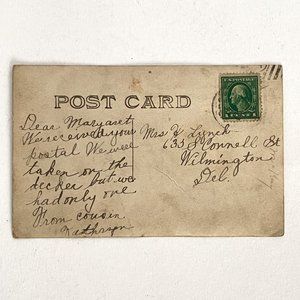 POST CARD
U.S. POSTAGE
Dear Margaret
We received your
postal We were
taken on the
decker but we
had only one
From cousin
Kathryn
Mrs H Lynch
633 S Connell St
Wilmington
Del